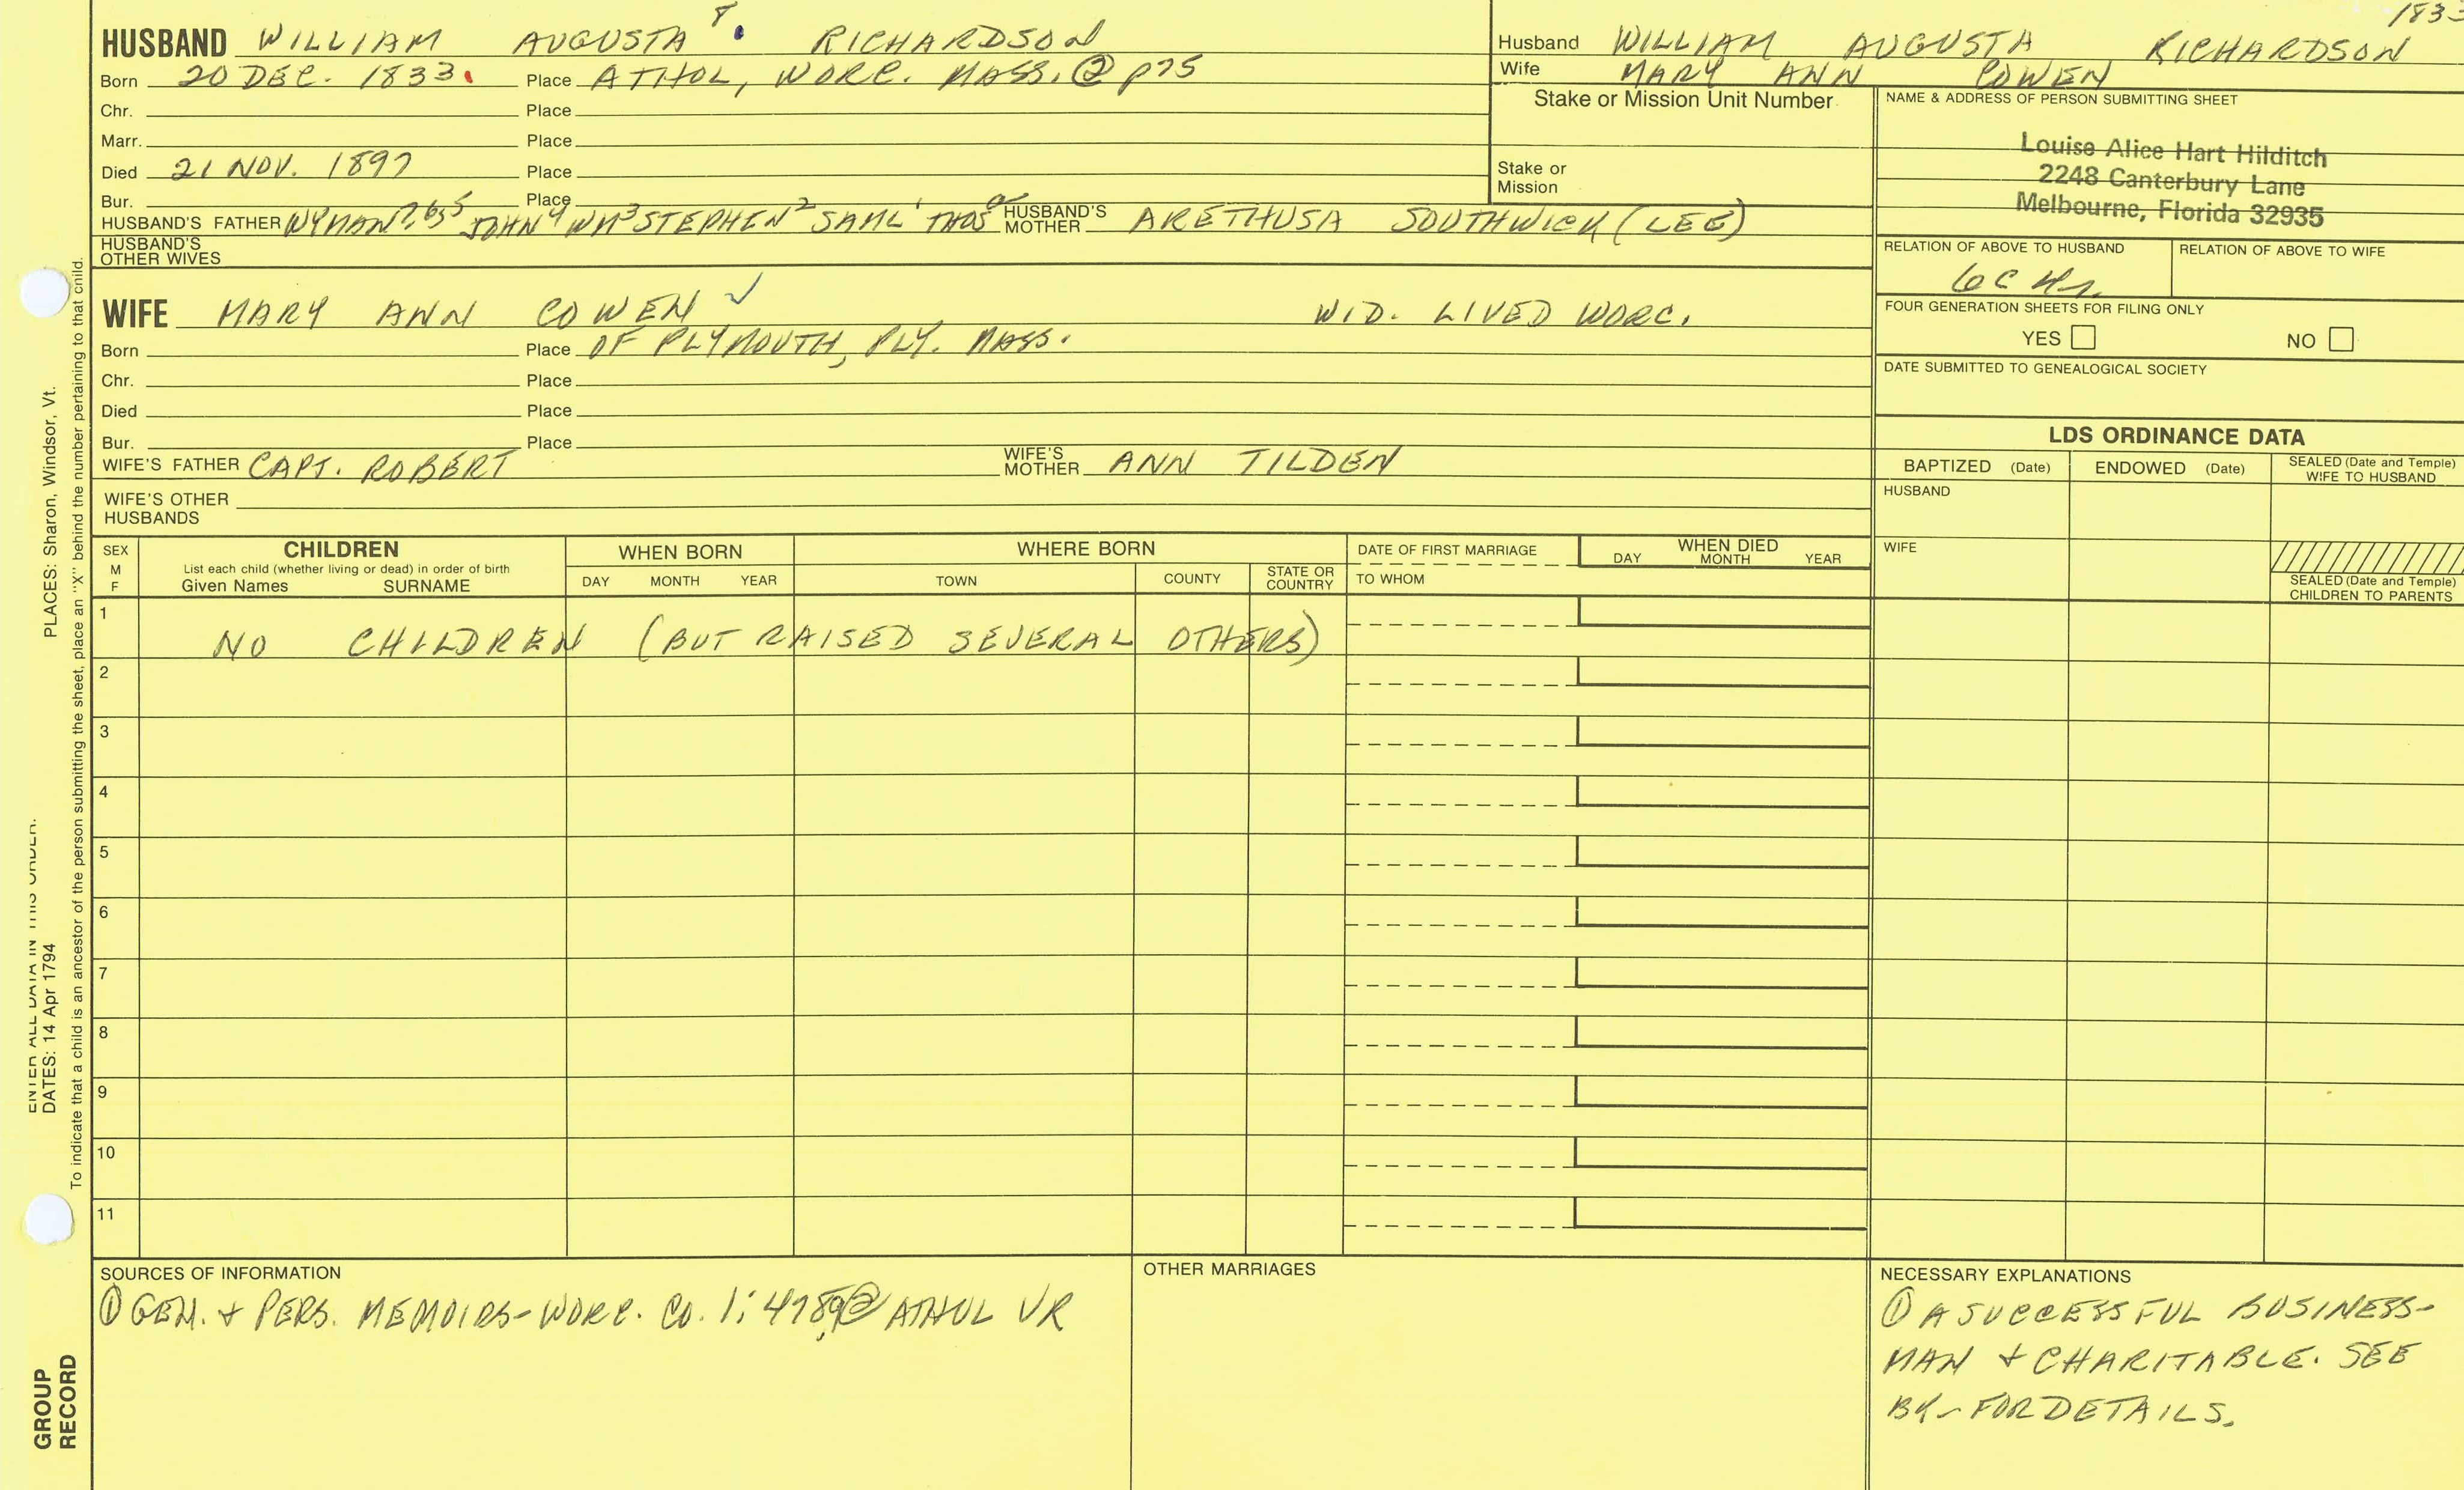 1833
HUSBAND WILLIAM AUGUSTA 8 RICHARDSON
Born 20 DEC. 1833. Place ATHOL, WORC. MASS. ② p75
Chr. Place
Marr. Place
Died 21 NOV. 1897 Place
Bur. Place
HUSBAND'S FATHER WYMAN 7,6,5 JOHN 4 WM 3 STEPHEN 2 SAML 1 THOS 0 HUSBAND'S MOTHER ARETHUSA SOUTHWICK (LEE)
HUSBAND'S OTHER WIVES
Husband WILLIAM AUGUSTA RICHARDSON
Wife MARY ANN COWEN
Stake or Mission Unit Number
Stake or
Mission
NAME & ADDRESS OF PERSON SUBMITTING SHEET
Louise Alice Hart Hilditch
2248 Canterbury Lane
Melbourne, Florida 32935
RELATION OF ABOVE TO HUSBAND RELATION OF ABOVE TO WIFE
6C
FOUR GENERATION SHEETS FOR FILING ONLY
YES NO
DATE SUBMITTED TO GENEALOGICAL SOCIETY
WIFE MARY ANN COWEN ✓ WID. LIVED WORC.
Born Place OF PLYMOUTH, PLY. MASS.
Chr. Place
Died Place
Bur. Place
WIFE'S FATHER CAPT. ROBERT WIFE'S MOTHER ANN TILDEN
WIFE'S OTHER
HUSBANDS
LDS ORDINANCE DATA
BAPTIZED (Date) ENDOWED (Date) SEALED (Date and Temple)
WIFE TO HUSBAND
HUSBAND
WIFE
SEALED (Date and Temple)
CHILDREN TO PARENTS
SEX
M
F
CHILDREN
List each child (whether living or dead) in order of birth
Given Names SURNAME
WHEN BORN
DAY MONTH YEAR
WHERE BORN
TOWN COUNTY STATE OR COUNTRY
DATE OF FIRST MARRIAGE
TO WHOM
WHEN DIED
DAY MONTH YEAR
1
NO CHILDREN (BUT RAISED SEVERAL OTHERS)
2
3
4
5
6
7
8
9
10
11
SOURCES OF INFORMATION
① GEN. + PERS. MEMOIRS-WORC. CO. 1; ② ATHOL VR
OTHER MARRIAGES
NECESSARY EXPLANATIONS
① A SUCCESSFUL BUSINESS-
MAN + CHARITABLE. SEE
BK - FOR DETAILS.
ENTER ALL DATA IN THIS ORDER.
DATES: 14 Apr 1794 PLACES: Sharon, Windsor, Vt.
To indicate that a child is an ancestor of the person submitting the sheet, place an "X" behind the number pertaining to that child.
GROUP
RECORD